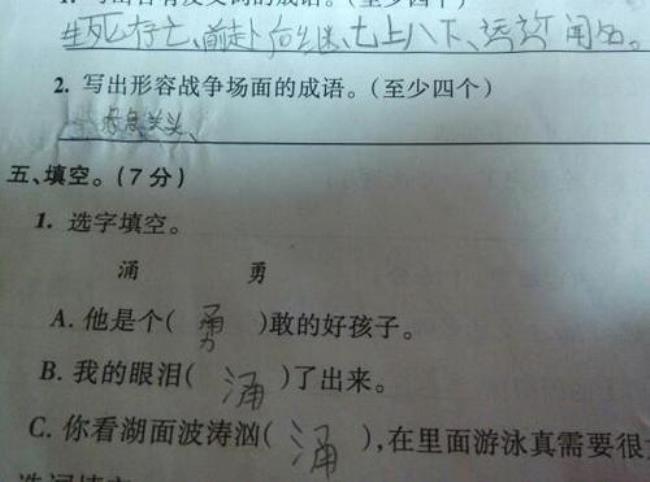 1. 写出含有反义词的成语。(至少四个)
生死存亡、前赴后继、七上八下、远近闻名。
2. 写出形容战争场面的成语。(至少四个)
危急关头、
五、填空。(7分)
1. 选字填空。
涌 勇
A. 他是个( 勇 )敢的好孩子。
B. 我的眼泪( 涌 )了出来。
C. 你看湖面波涛汹( 涌 ),在里面游泳真需要很
选词填空